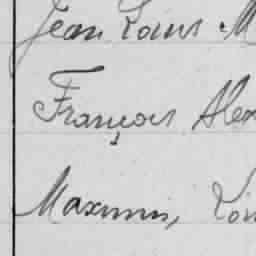 Jean Louis M
François Alex
Maximin, Lou